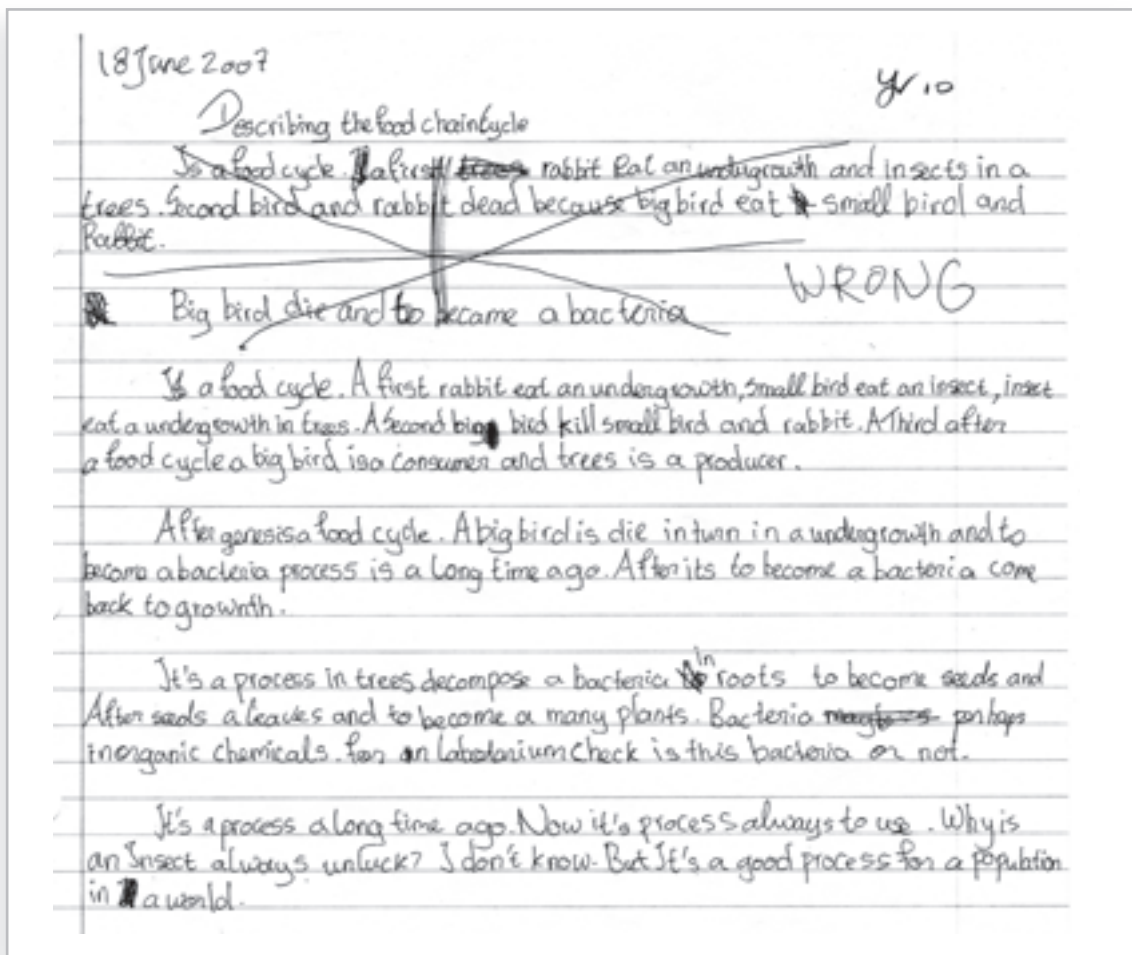 18 June 2007
yr 10
Describing the food chain cycle
Is a food cycle. a first trees rabbit eat an undugrowth and insects in a
trees. Second bird and rabbit dead because big bird eat small bird and
Rabbit.
WRONG
Big bird die and to became a bacteria
Is a food cycle. A first rabbit eat an undergrowth, small bird eat an insect, insect
eat a undergrowth in trees. A Second big bird kill small bird and rabbit. A Third after
a food cycle a big bird is a consumer and trees is a producer.
After genesis a food cycle. A big bird is die in turn in a undergrowth and to
become a bacteria process is a long time ago. After its to become a bacteria come
back to grownth.
It's a process in trees decompose a bacteria in roots to become seeds and
After seeds a leaves and to become a many plants. Bacteria perhaps
inorganic chemicals. for an labotarium check is this bacteria or not.
It's a process a long time ago. Now it's process always to use. Why is
an Insect always unluck? I don't know. But It's a good process for a population
in a world.